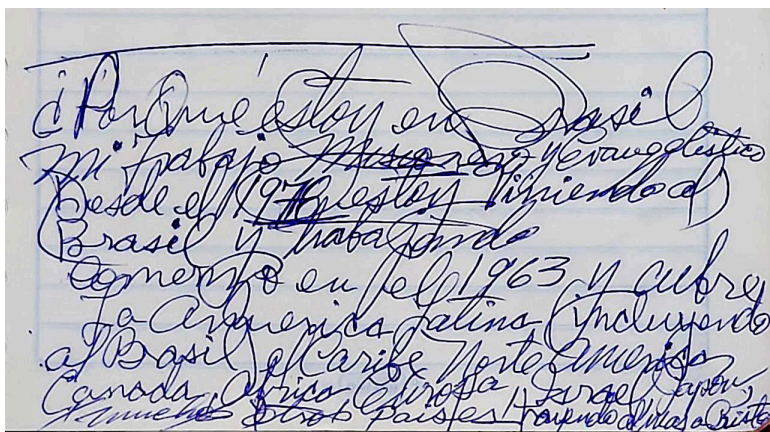 ¿Por Qué estoy en Brasil
mi trabajo Misionero y Evangelistico
Desde el 1970 estoy Viniendo al
Brasil y trabajando
Comenzo en el 1963 y cubre
La America Latina (incluyendo
al Brasil, el Caribe Norte America
Canada, Africa Europa, Israel Japon,
y muchos otros países trayendo almas a Cristo